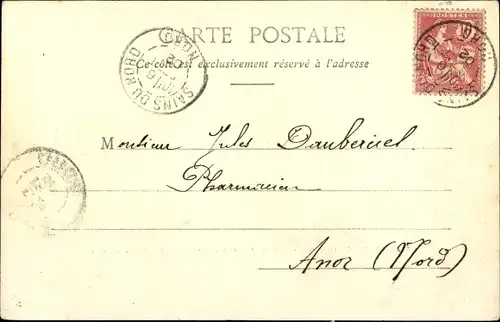 CARTE POSTALE
Ce côté est exclusivement réservé à l'adresse
SAINS DU NORD (NORD)
POSTES
Monsieur Jules
Pharmacien
Anor (Nord)